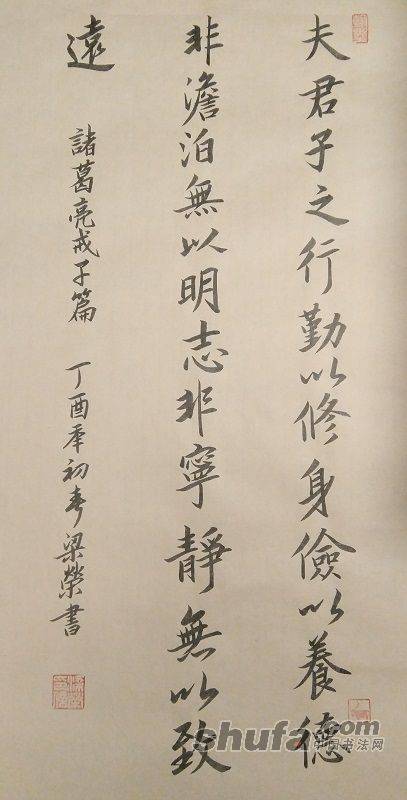 夫君子之行勤以修身儉以養德
非澹泊無以明志非寧靜無以致
遠
諸葛亮戒子篇 丁酉年初春梁榮書
shufa.com
中国书法网